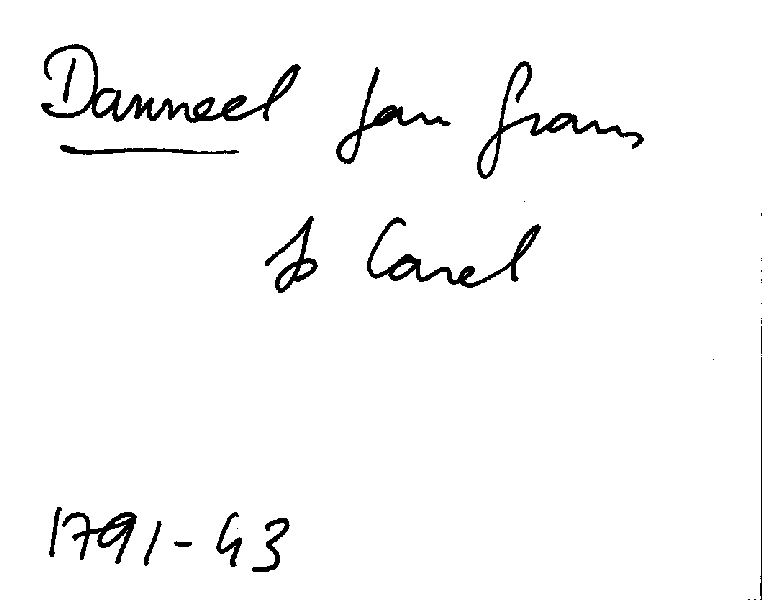 Danneel Jan Frans
fs Carel
1791-43